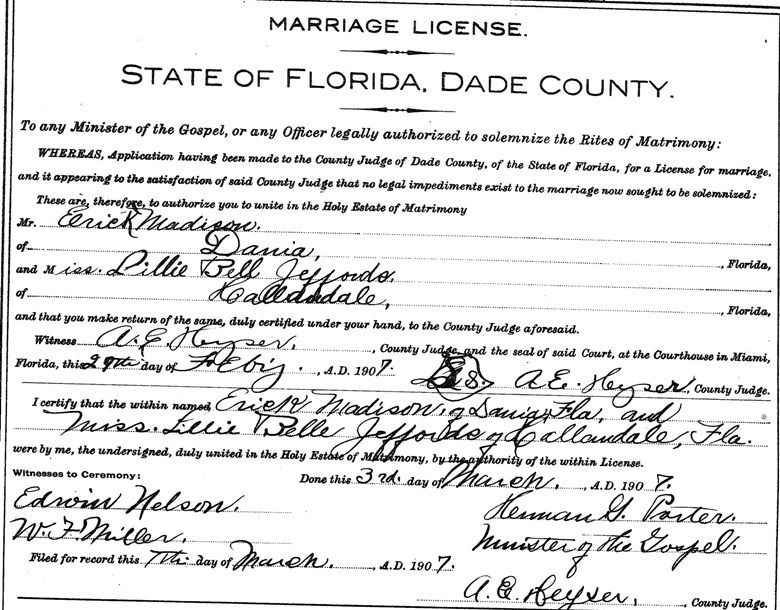 MARRIAGE LICENSE.
STATE OF FLORIDA, DADE COUNTY.
To any Minister of the Gospel, or any Officer legally authorized to solemnize the Rites of Matrimony:
WHEREAS, Application having been made to the County Judge of Dade County, of the State of Florida, for a License for marriage,
and it appearing to the satisfaction of said County Judge that no legal impediments exist to the marriage now sought to be solemnized:
These are, therefore, to authorize you to unite in the Holy Estate of Matrimony
Mr. Erick Madison.
of Dania, , Florida,
and Miss. Lillie Bell Jeffords.
of Hallandale, , Florida,
and that you make return of the same, duly certified under your hand, to the County Judge aforesaid.
Witness A. E. Heyser. , County Judge, and the seal of said Court, at the Courthouse in Miami,
Florida, this day of , A.D. 1907. A. E. Heyser, County Judge.
I certify that the within named Erick Madison, of Dania, Fla, and
Miss. Lillie Belle Jeffords of Hallandale, Fla.
were by me, the undersigned, duly united in the Holy Estate of Matrimony, by the authority of the within License.
Witnesses to Ceremony: Done this 3rd. day of March. , A.D. 1907.
Edwin Nelson. Herman G. Porter.
W. F. Miller. Minister of the Gospel.
Filed for record this 7th day of March. , A.D. 1907.
A. E. Heyser, , County Judge.